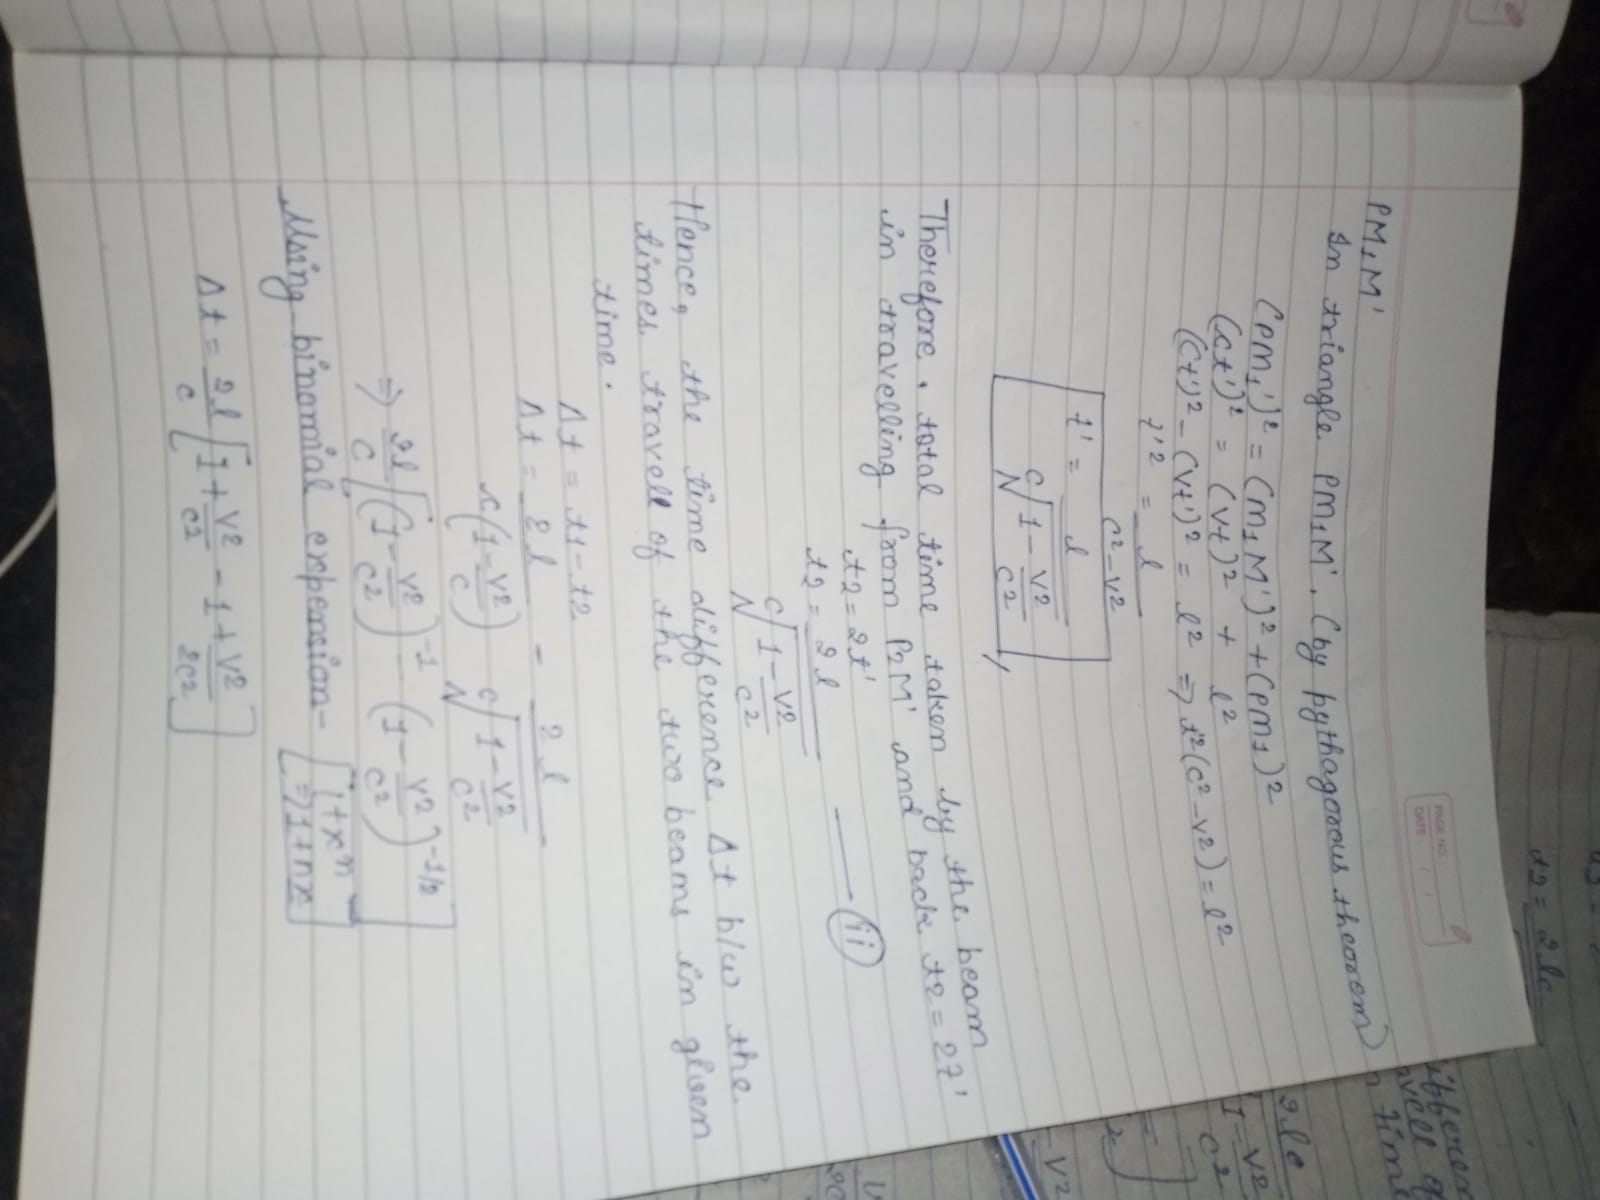 PAGE NO.:
DATE: / /
PM1M'
In triangle PM1M', (by pythagorous theorem)
(PM1')² = (M1M')² + (PM1)²
(ct')² = (vt)² + l²
(ct')² - (vt')² = l² ⇒ t²(c² - v²) = l²
t'² = l
c² - v²
t' = l
c√1 - v²
c²
Therefore, total time taken by the beam
in travelling from P2M' and back t2 = 2t'
t2 = 2t'
t2 = 2l (ii)
c√1 - v²
c²
Hence, the time difference Δt b/w the
times travell of the two beams in given
time.
Δt = t1 - t2
Δt = 2l - 2l
c(1 - v²/c) c√1 - v²/c²
⇒ 2l/c [(1 - v²/c²)⁻¹ - (1 - v²/c²)⁻¹/²]
Using binomial expension- [1 + xⁿ
⇒ 1 + nx]
Δt = 2l/c [1 + v²/c² - 1 + v²/2c²]
t2 = 2lc
2lc
1 - v²
c²